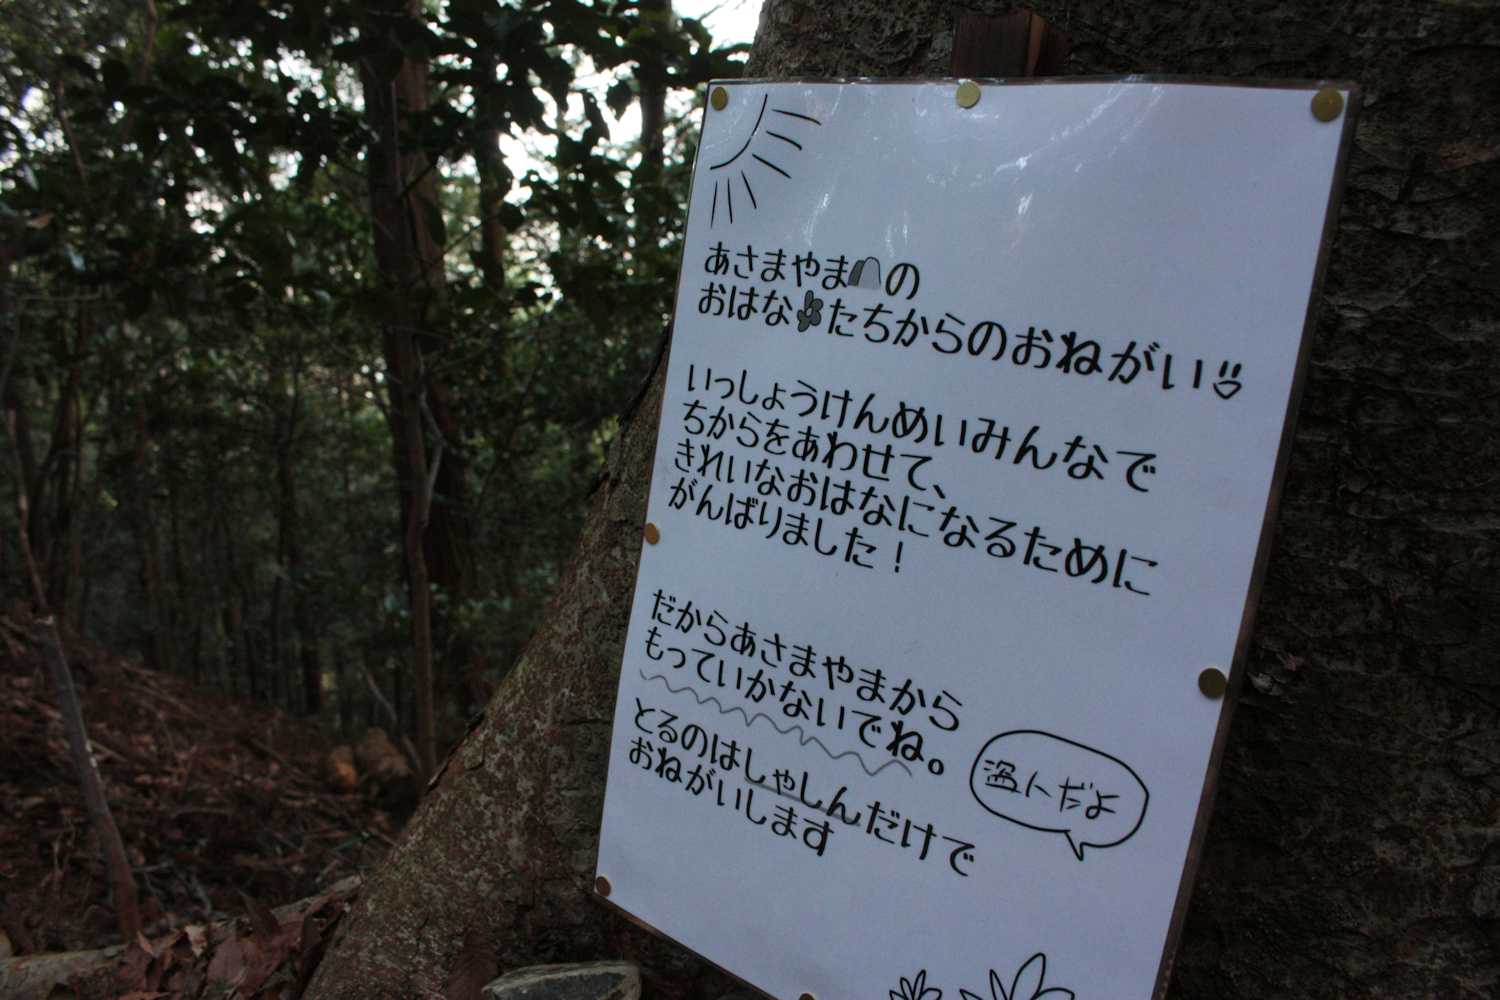 あさまやまの
おはなたちからのおねがい
いっしょうけんめいみんなで
ちからをあわせて、
きれいなおはなになるために
がんばりました！
だからあさまやまから
もっていかないでね。
とるのはしゃしんだけで
おねがいします
盗んだよ